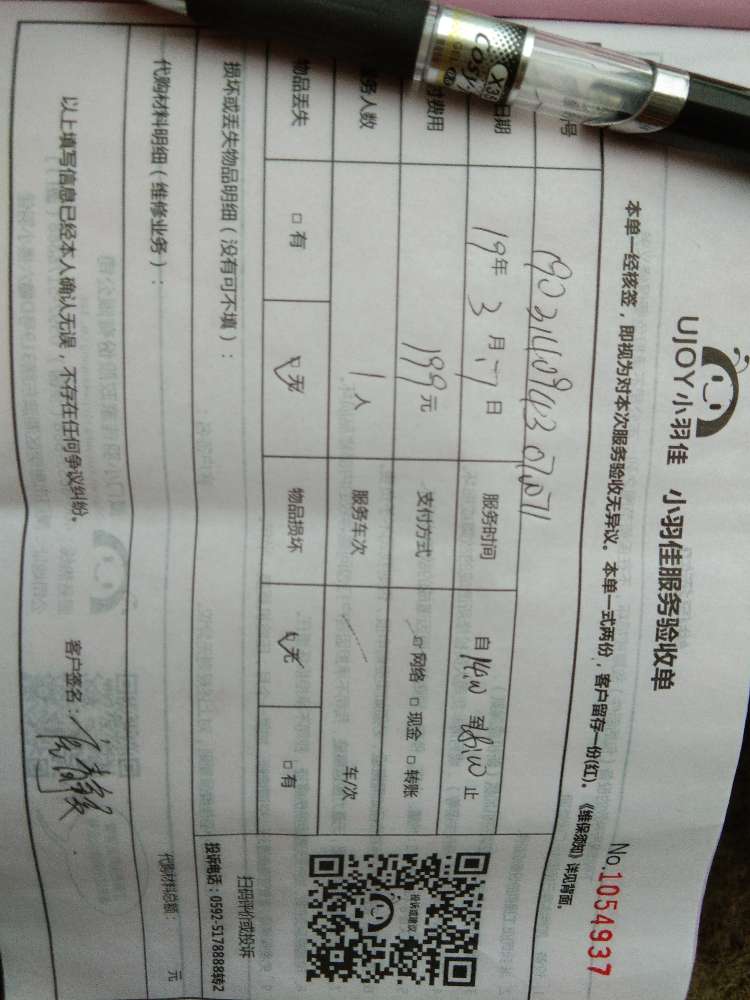 UJOY小羽佳 小羽佳服务验收单
No.1054937
本单一经核签，即视为对本次服务验收无异议。本单一式两份，客户留存一份(红)。《维保须知》详见背面。
号
日期 19年3月17日 服务时间 自14:00至18:00止
费用 199元 支付方式 ☑网络 □现金 □转账
务人数 1人 服务车次 车/次
物品丢失 □有 ☑无 物品损坏 ☑无 □有
损坏或丢失物品明细（没有可不填）：
投诉或建议
扫码评价或投诉
投诉电话：0592-5178888转2
代购材料明细（维修业务）：
代购材料总额： 元
以上填写信息已经本人确认无误，不存在任何争议纠纷。 客户签名：